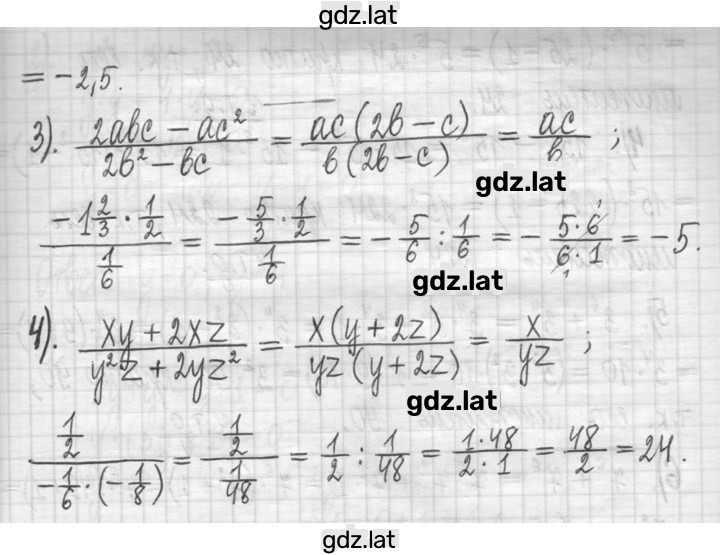 gdz.lat
= -2,5.
3). (2abc - ac²)/(2b² - bc) = (ac(2b - c))/(b(2b - c)) = ac/b ;
gdz.lat
(-1 2/3 · 1/2)/(1/6) = (-5/3 · 1/2)/(1/6) = -5/6 : 1/6 = -(5·6)/(6·1) = -5.
gdz.lat
4). (xy + 2xz)/(y²z + 2yz²) = (x(y + 2z))/(yz(y + 2z)) = x/(yz) ;
gdz.lat
(1/2)/(-1/6 · (-1/8)) = (1/2)/(1/48) = 1/2 : 1/48 = (1·48)/(2·1) = 48/2 = 24.
gdz.lat